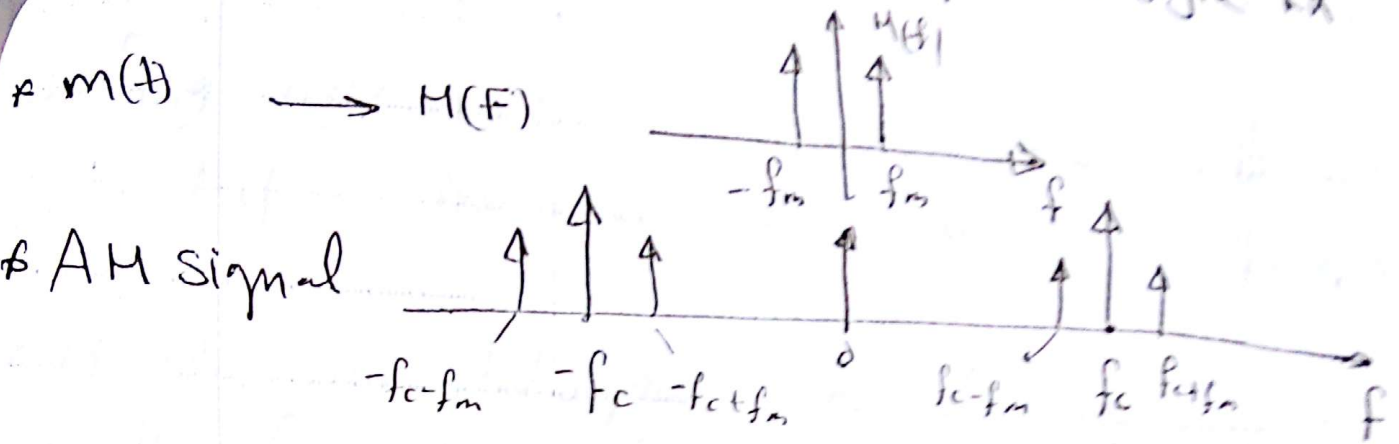 * m(t) → M(F)
M(f)
-fm fm f
* AM signal
-fc-fm -fc -fc+fm 0 fc-fm fc fc+fm f